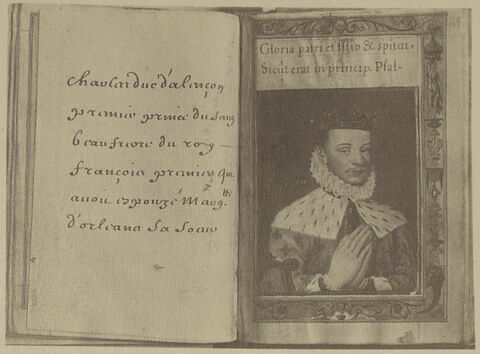 Charles duc d'alençon
premier prince du sang
beau frere du roy
françois premier qui
auoit espouzé Marg.
tte
d'orleans sa soeur
Gloria patri et filio & spitui.
Sicut erat in princip. Psal.